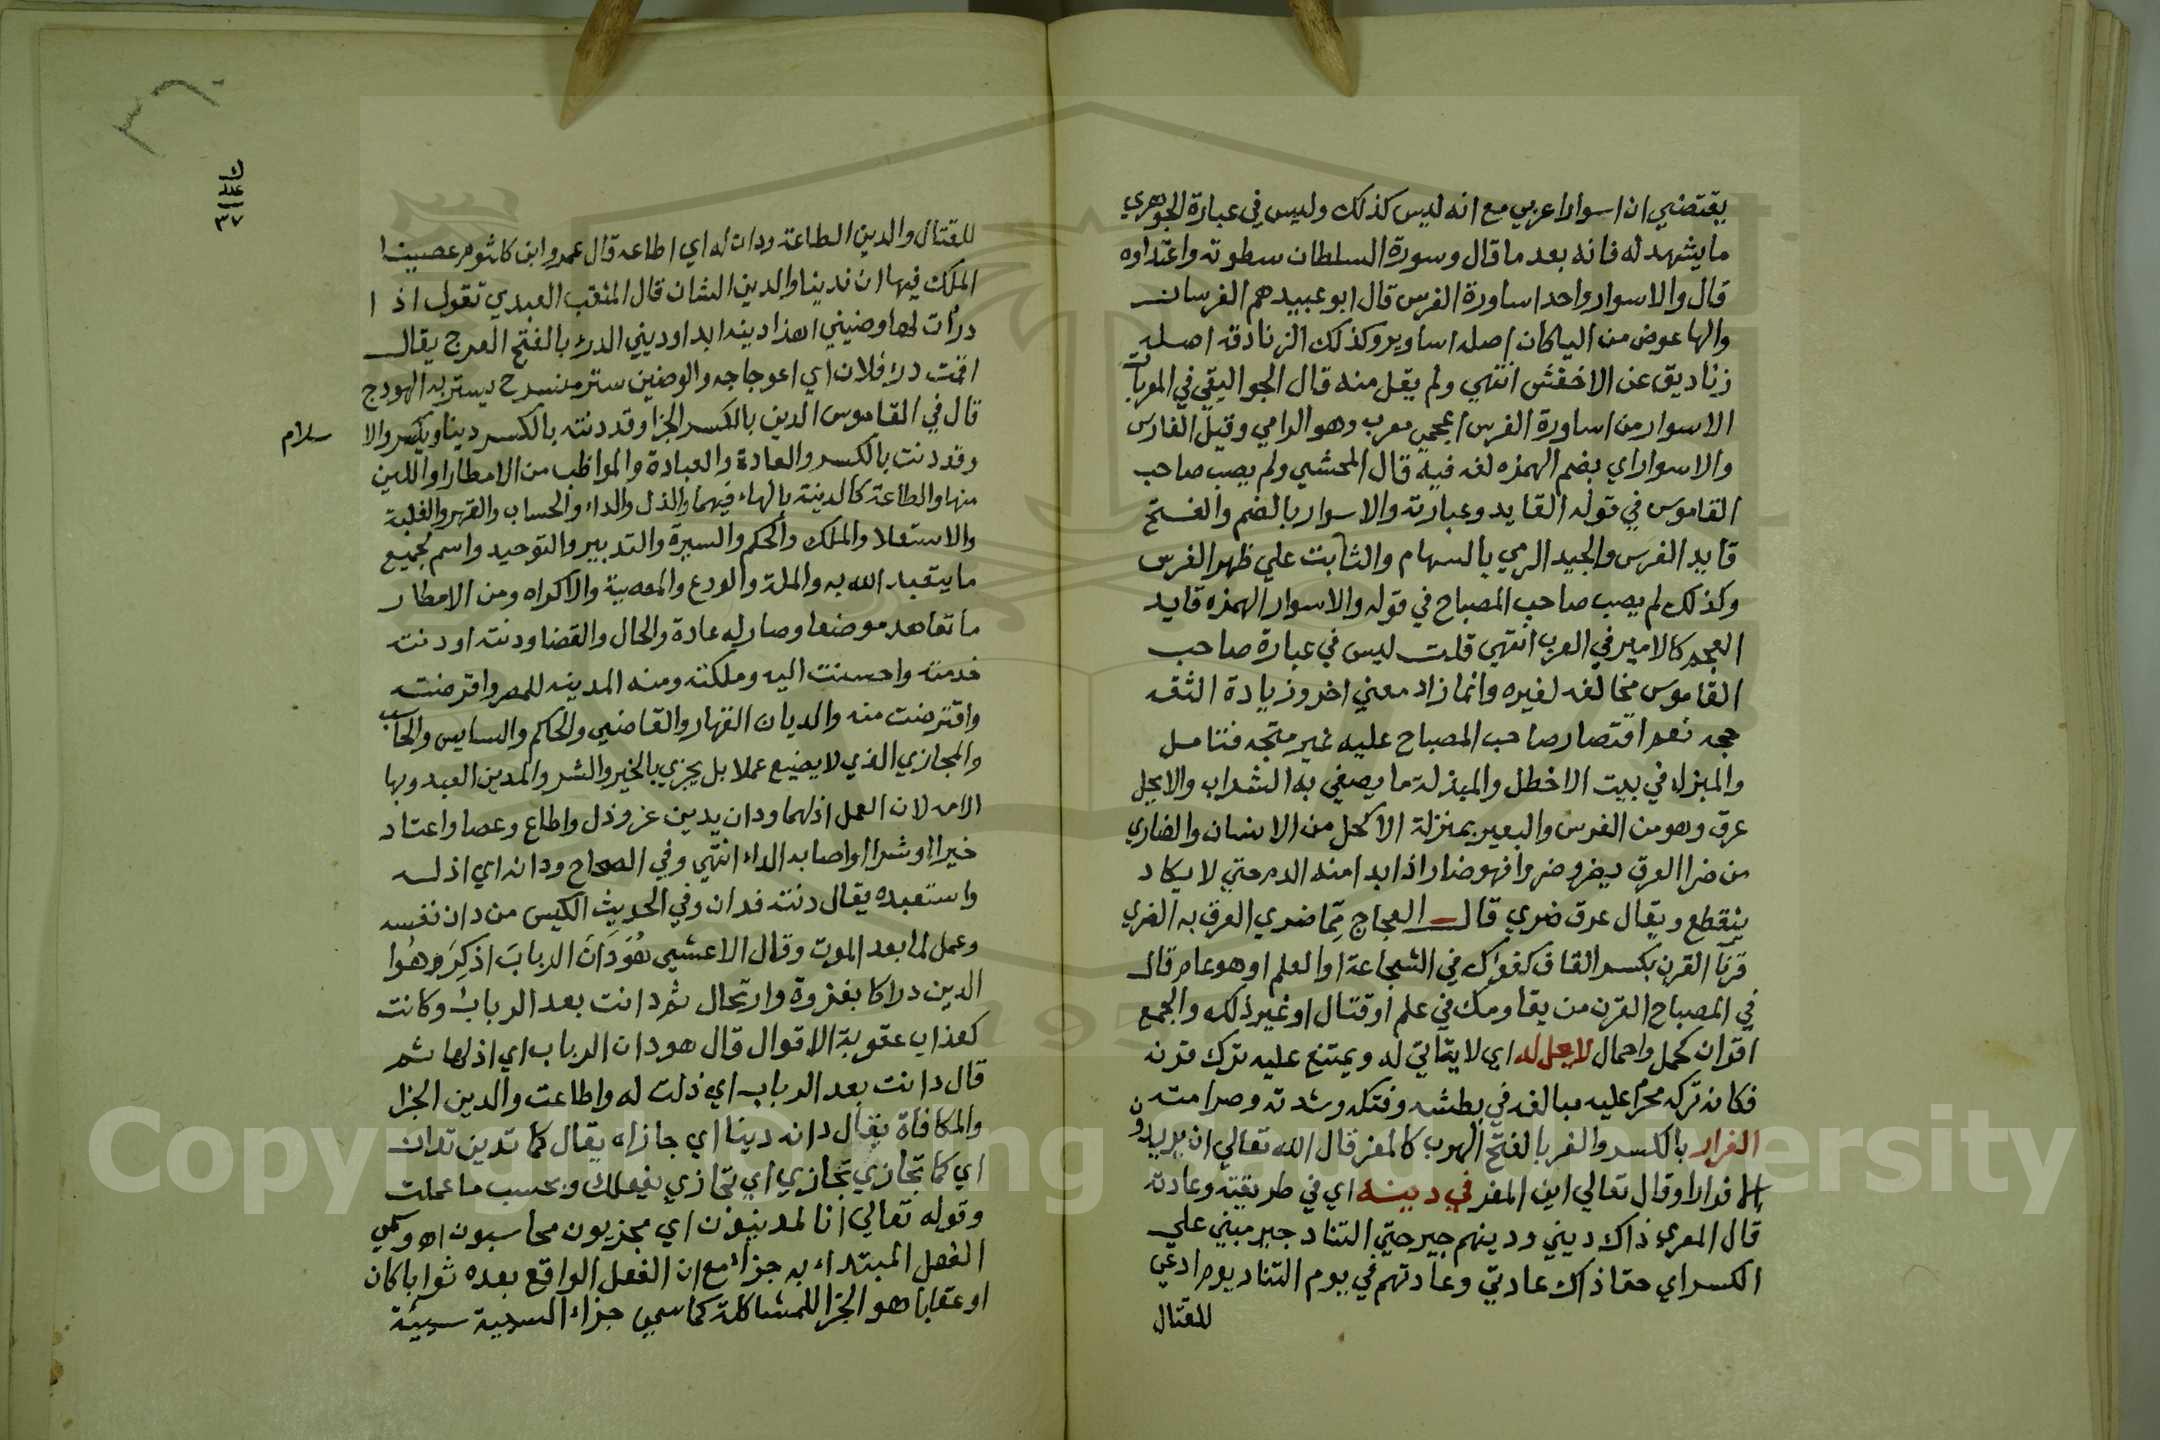 يقتضي ان اسوارا عربي مع انه ليس كذلك وليس في عبارة الجوهري
ما يشهد له فانه بعد ما قال وسورة السلطان سطوته واعتداوه
قال والاسوار واحد اساورة الفرس قال ابو عبيد هم الفرسان
والها عوض من اليا كان اصله اساوير وكذلك الزنادقه اصله
زناديق عن الاخفش انتهي ولم يقل منه قال الجواليقي في المعربات
الاسوار من اساورة الفرس اعجمي معرب وهو الرامي وقيل الفارس
والاسوار اي بضم الهمزه لغه فيه قال المحشي ولم يصب صاحب
القاموس في قوله القايد وعبارته والاسوار بالضم والفتح
قايد الفرس والجيد الرمي بالسهام والثابت علي ظهر الفرس
وكذلك لم يصب صاحب المصباح في قوله والاسوار الهمزه قايد
العجم كالامير في العرب انتهي قلت ليس في عبارة صاحب
القاموس مخالفه لغيره وانما زاد معني اخر وزيادة الثقه
حجه نعم اقتصار صاحب المصباح عليه غير متجه فتامل
والمبزل في بيت الاخطل والمبزلة ما يصفي به الشراب والابجل
عرق وهو من الفرس والبعير بمنزلة الاكحل من الانسان والضاري
من ضرا العرق يضرو ضروا فهو ضار اذا بدا منه الدم حتي لا يكاد
ينقطع ويقال عرق ضري قال العجاج مما ضري العرق به الضري
قرنا القرن بكسر القاف كفوك في الشجاعة او العلم او هو عام قال
في المصباح القرن من يقاومك في علم او قتال او غير ذلك والجمع
اقران كحمل واحمال لا يحل له اي لا يتاتي له ويمتنع عليه ترك قرنه
فكان تركه محرم عليه مبالغه في بطشه وفتكه وشدته وصرامته
الفرار بالكسر والفر بالفتح الهرب كالمفر قال الله تعالي ان يريدون
الا فرارا وقال تعالي اين المفر في دينه اي في طريقته وعادته
قال المعري ذاك ديني ودينهم جير حتي التناد جير مبني علي
الكسر اي حقا ذاك عادتي وعادتهم في يوم التناد يوم ادعي
للقتال
٣٦
ك
عدد
٣٧
للقتال والدين الطاعة ودان له اي اطاعه قال عمرو ابن كلثوم عصينا
الملك فيها ان ندينا والدين الشان قال المثقب العبدي تقول اذا
درات لها وضيني اهذا دينه ابدا وديني الدرء بالفتح العوج يقال
اقمت درء فلان اي اعوجاجه والوضين ستر منسرح يستر به الهودج
قال في القاموس الدين بالكسر الجزا وقد دنته بالكسر دينا ويكسر والا
سلام
وقد دنت بالكسر والعادة والعبادة والمواظب من الامطار او اللين
منها والطاعة كالدينة بالهاء فيهما والذل والداء والحساب والقهر والغلبة
والاستعلا والملك والحكم والسيرة والتدبير والتوحيد واسم لجميع
ما يتعبد الله به والملة والورع والمعصية والاكراه ومن الامطار
ما تعاهد موضعا وصار له عادة والحال والقضا ودنته او دنت
خدمته واحسنت اليه وملكته ومنه المدينه للمصر واقرضته
واقترضت منه والديان القهار والقاضي والحاكم والسايس والحاسب
والمجازي الذي لا يضيع عملا بل يجزي بالخير والشر والمدين العبد وبها
الامه لان العمل اذلهما ودان يدين عز وذل واطاع وعصا واعتاد
خيرا او شرا او اصابه الداء انتهي وفي الصحاح ودانه اي اذله
واستعبده يقال دنته فدان وفي الحديث الكيس من دان نفسه
وعمل لما بعد الموت وقال الاعشي هُوَ دَانَ الربابَ اذ كرِهُوا
الدين دراكا بغزوة وارتحال ثم دانت بعد الرباب وكانت
كعذاب عقوبة الاقوال قال هو دان الرباب اي اذلها ثم
قال دانت بعد الرباب اي ذلت له واطاعت والدين الجزا
والمكافاة يقال دانه دينا اي جازاه يقال كما تدين تدان
اي كما تجازي تجازي اي تجازي بفعلك وبحسب ما عملت
وقوله تعالي انا لمدينون اي مجزيون محاسبون اه وسمي
الفعل المبتداء به جزاء مع ان الفعل الواقع بعده ثوابا كان
او عقابا هو الجزا للمشاكلة كما سمي جزاء السيية سيئة